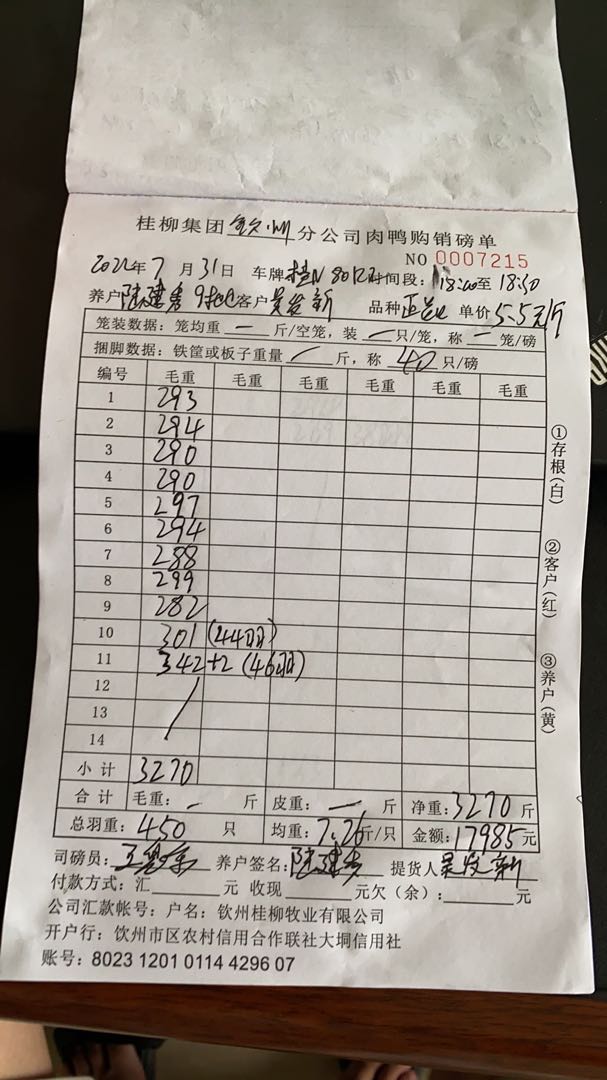 桂柳集团钦州分公司肉鸭购销磅单
NO 0007215
2022年7月31日 车牌桂N 时间段：18:20至18:50
养户陆建 客户吴发新 品种 单价5.5元/斤
笼装数据：笼均重 — 斤/空笼，装 — 只/笼，称 — 笼/磅
捆脚数据：铁筐或板子重量 / 斤，称 40 只/磅
编号 毛重 毛重 毛重 毛重 毛重 毛重
1 293
2 294
3 290
4 290
5 297
6 294
7 288
8 299
9 282
10 301 (44羽)
11 342+2 (46羽)
12 /
13
14
小计 3270
合计 毛重：— 斤 皮重：— 斤 净重：3270斤
总羽重：450 只 均重：7.26斤/只 金额：17985元
司磅员： 养户签名：陆建 提货人吴发新
付款方式：汇 元 收现 元欠（余）： 元
公司汇款帐号：户名：钦州桂柳牧业有限公司
开户行：饮州市区农村信用合作联社大垌信用社
账号：8023 1201 0114 4296 07
①存根(白)
②客户(红)
③养户(黄)